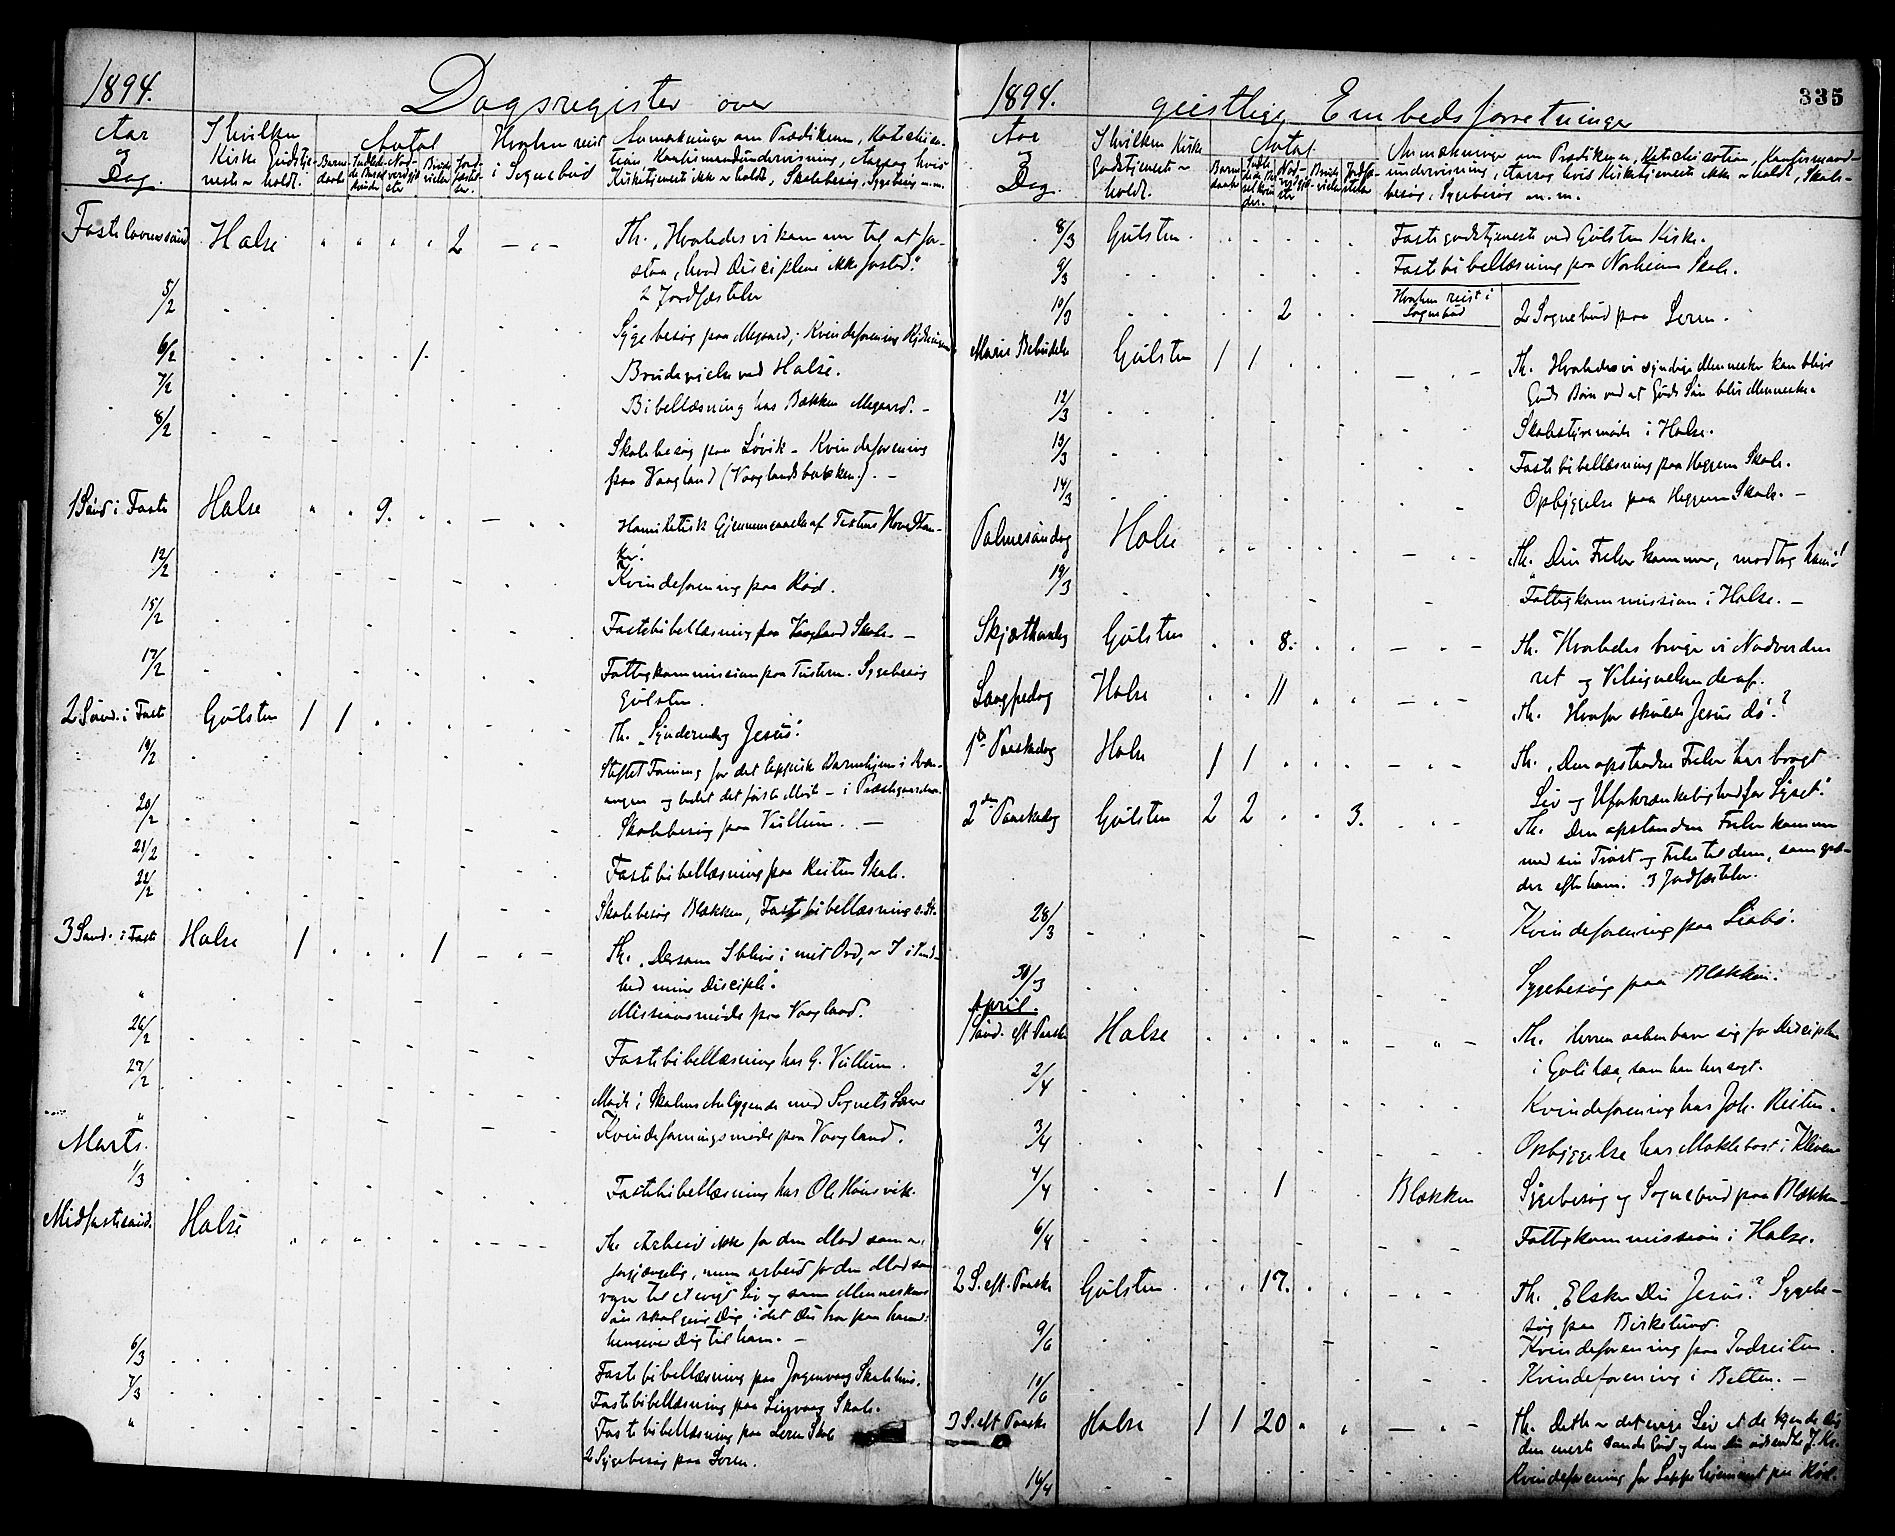 1894. Dagsregister over
Aar og Dag
I hvilken Kirke Gudstjeneste er holdt.
Antal
Barnedaab
Jordfæstelser
Hvorhen reist i Sognebud
Anmærkninger om Prædikenen, Katechisation, Konfirmandundervisning, Aarsag hvis Kirketjeneste ikke er holdt, Skolebesøg, Sygebesøg m.m.
Fastelavnssönd Halse " " " " 2 — " — Th. "Hvorledes vi kommer til at forstaa, hvad Disciplene ikke forstod."
2 Jordfæstelser
5/2 Sygebesøg paa Megaard; Kvindeforening
6/2 1 Brudevielse ved Halse.
7/2 Bibellæsning hos Bakken Megaard. –
8/2 Skolebesøg paa Løvik – Kvindeforening
paa Vaagland (Vaaglandsbakken). –
1 Sönd i Faste Halse " " 9. Homiletisk Gjennemgaaelse af Textens Hovedtanker.
12/2 Kvindeforening paa Rød.
15/2 Fastebibellæsning paa Vaagland Skole. —
17/2 Fattigkommission paa Tustern. Sygebesøg
Gulsten.
2 Sönd. i Faste Gulsten 1 1 Th. "Synderen og Jesus".
19/2 Stiftet Forening for det lappiske Barnehjem i
og ledet det første Møde – i Præstegaarden.
20/2 Skolebesøg paa Vullum. —
21/2 Fastebibellæsning paa Reiten Skole.
22/2 Skolebesøg Blekken, Fastebibellæsning s. St.
3 Sönd. i Faste Halse 1 1 Th. "Dersom I blive i mit Ord, er I i Sandhed mine Disciple".
" Missionsmøde paa Vaagland.
26/2 Fastebibellæsning hos G. Vullum.
27/2 Møde i Skolens Anliggende med Sognets Lærere
" Kvindeforeningsmøde paa Vaagland.
Marts.
1/3 Fastebibellæsning hos Ole Hönsvik.
Midfastesönd. Halse Th. Arbeid ikke for den Mad som er
forgjængelig, men arbeid for den Mad som
varer til et evigt Liv og som Menneskens
Sön skal give Dig, idet Du tror paa ham:
hengiver Dig til ham. —
6/3 Fastebibellæsning paa Jørgenvaag Skolehus.
7/3 Fastebibellæsning paa Liavaag Skole.
" Fastebibellæsning paa Leren Skole
2 Sygebesøg paa Leren.
1894. geistlige Embedsforretninger 335
Aar og Dag
I hvilken Kirke Gudstjeneste er holdt.
Antal
Anmærkninger om Prædikenen, Katechisation, Konfirmandundervisning, Aarsag hvis Kirketjeneste ikke er holdt, Skolebesøg, Sygebesøg m.m.
8/3 Gulsten. Fastegudstjeneste ved Gulsten Kirke.
9/3 Fastebibellæsning paa Norheim Skole.
Hvorhen reist i Sognebud
10/3 2 2 Sognebud paa Leren.
Mariæ Bebudelse Gulsten 1 1 Th. Hvorledes vi syndige Mennesker kan blive
Guds Børn ved at Guds Sön blev Menneske.
12/3 Skolestyremøde i Halse.
13/3 Fastebibellæsning paa Heggem Skole.
14/3 Opbyggelse paa Heggem Skole. —
Palmesöndag Halse Th. "Din Frelser kommer, modtag ham!"
19/3 Fattigkommission i Halse. —
Skjærthorsdag Gulsten 8. Th. Hvorledes bruge vi Nadverden
ret og Velsignelsen deraf.
Langfredag Halse 11 Th. Hvorfor skulde Jesus dö?
1ste Paaskedag Halse 1 1 Th. "Den opstandne Frelser har bragt
Liv og Uforkrænkelighed for Lyset".
2den Paaskedag Gulsten 2 2 3. Th. Den opstandne Frelser kommer
med sin Trøst og Frelse til dem, som græder efter ham. 3 Jordfæstelser.
28/3 Kvindeforening paa Liabö.
30/3 Sygebesøg paa Blekken.
April.
1 Sönd. eft Paaske Halse Th. Herren aabenbarer sig for Disciplene
i Galilæa, som han har sagt.
2/4 Kvindeforening hos Joh. Reiten.
3/4 Opbyggelse hos
4/4 1 Blekken Sygebesøg og Sognebud paa Blekken
6/4 Fattigkommission i Halse.
2 S. eft. Paaske Gulsten 17. Th. "Elsker Du Jesus?" Sygebesøg paa Birkelund.
9/6 Kvindeforening paa Indreiten.
10/6 Kvindeforening i Betten. —
3 S. eft Paaske Halse 1 1 20 Th. Dette er det evige Liv at de kjende Dig
den eneste sande Gud og den Du udsendte J. Kr.
14/4 Kvindeforening for Lappehjemmet paa Rød.